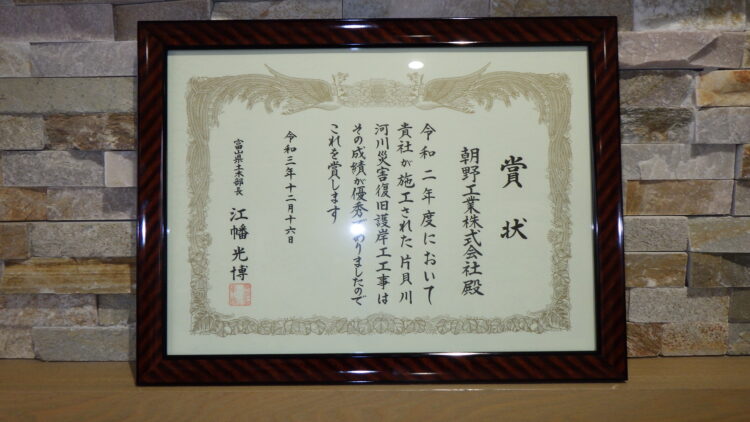 賞状
朝野工業株式会社殿
令和二年度において
貴社が施工された片貝川
河川災害復旧護岸工工事は
その成績が優秀でありましたので
これを賞します
令和三年十二月十六日
富山県土木部長 江幡光博